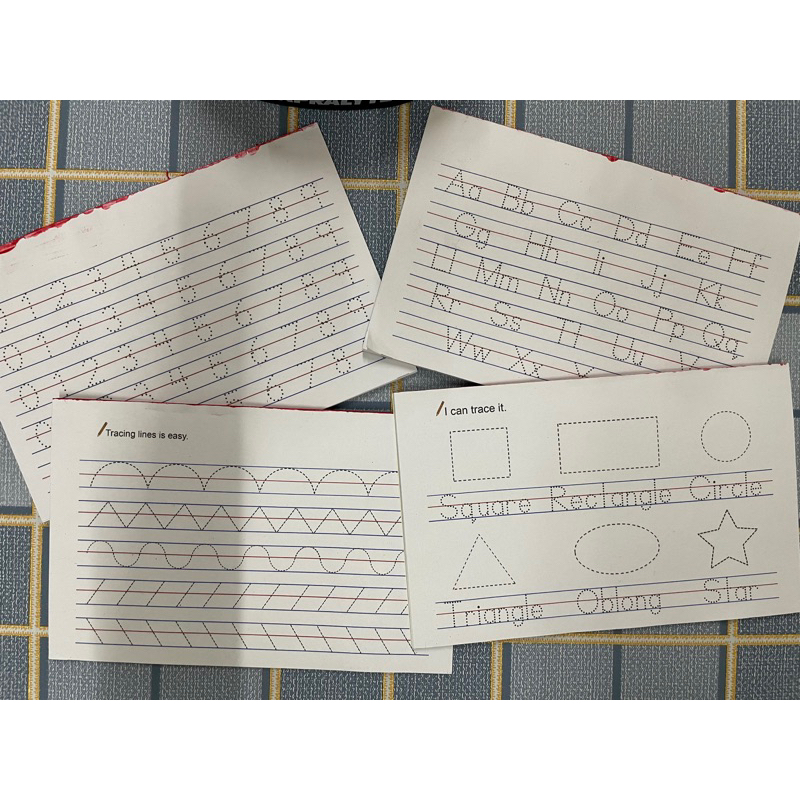 1 2 3 4 5 6 7 8 9
0 1 2 3 4 5 6 7 8 9
0 1 2 3 4 5 6 7 8 9
4 5 6 7 8 9
6 7 8
Aa Bb Cc Dd Ee Ff
Gg Hh Ii Jj Kk
Ll Mm Nn Oo Pp Qq
Rr Ss Tt Uu
Ww Xx
Tracing lines is easy.
I can trace it.
Square Rectangle Circle
Triangle Oblong Star